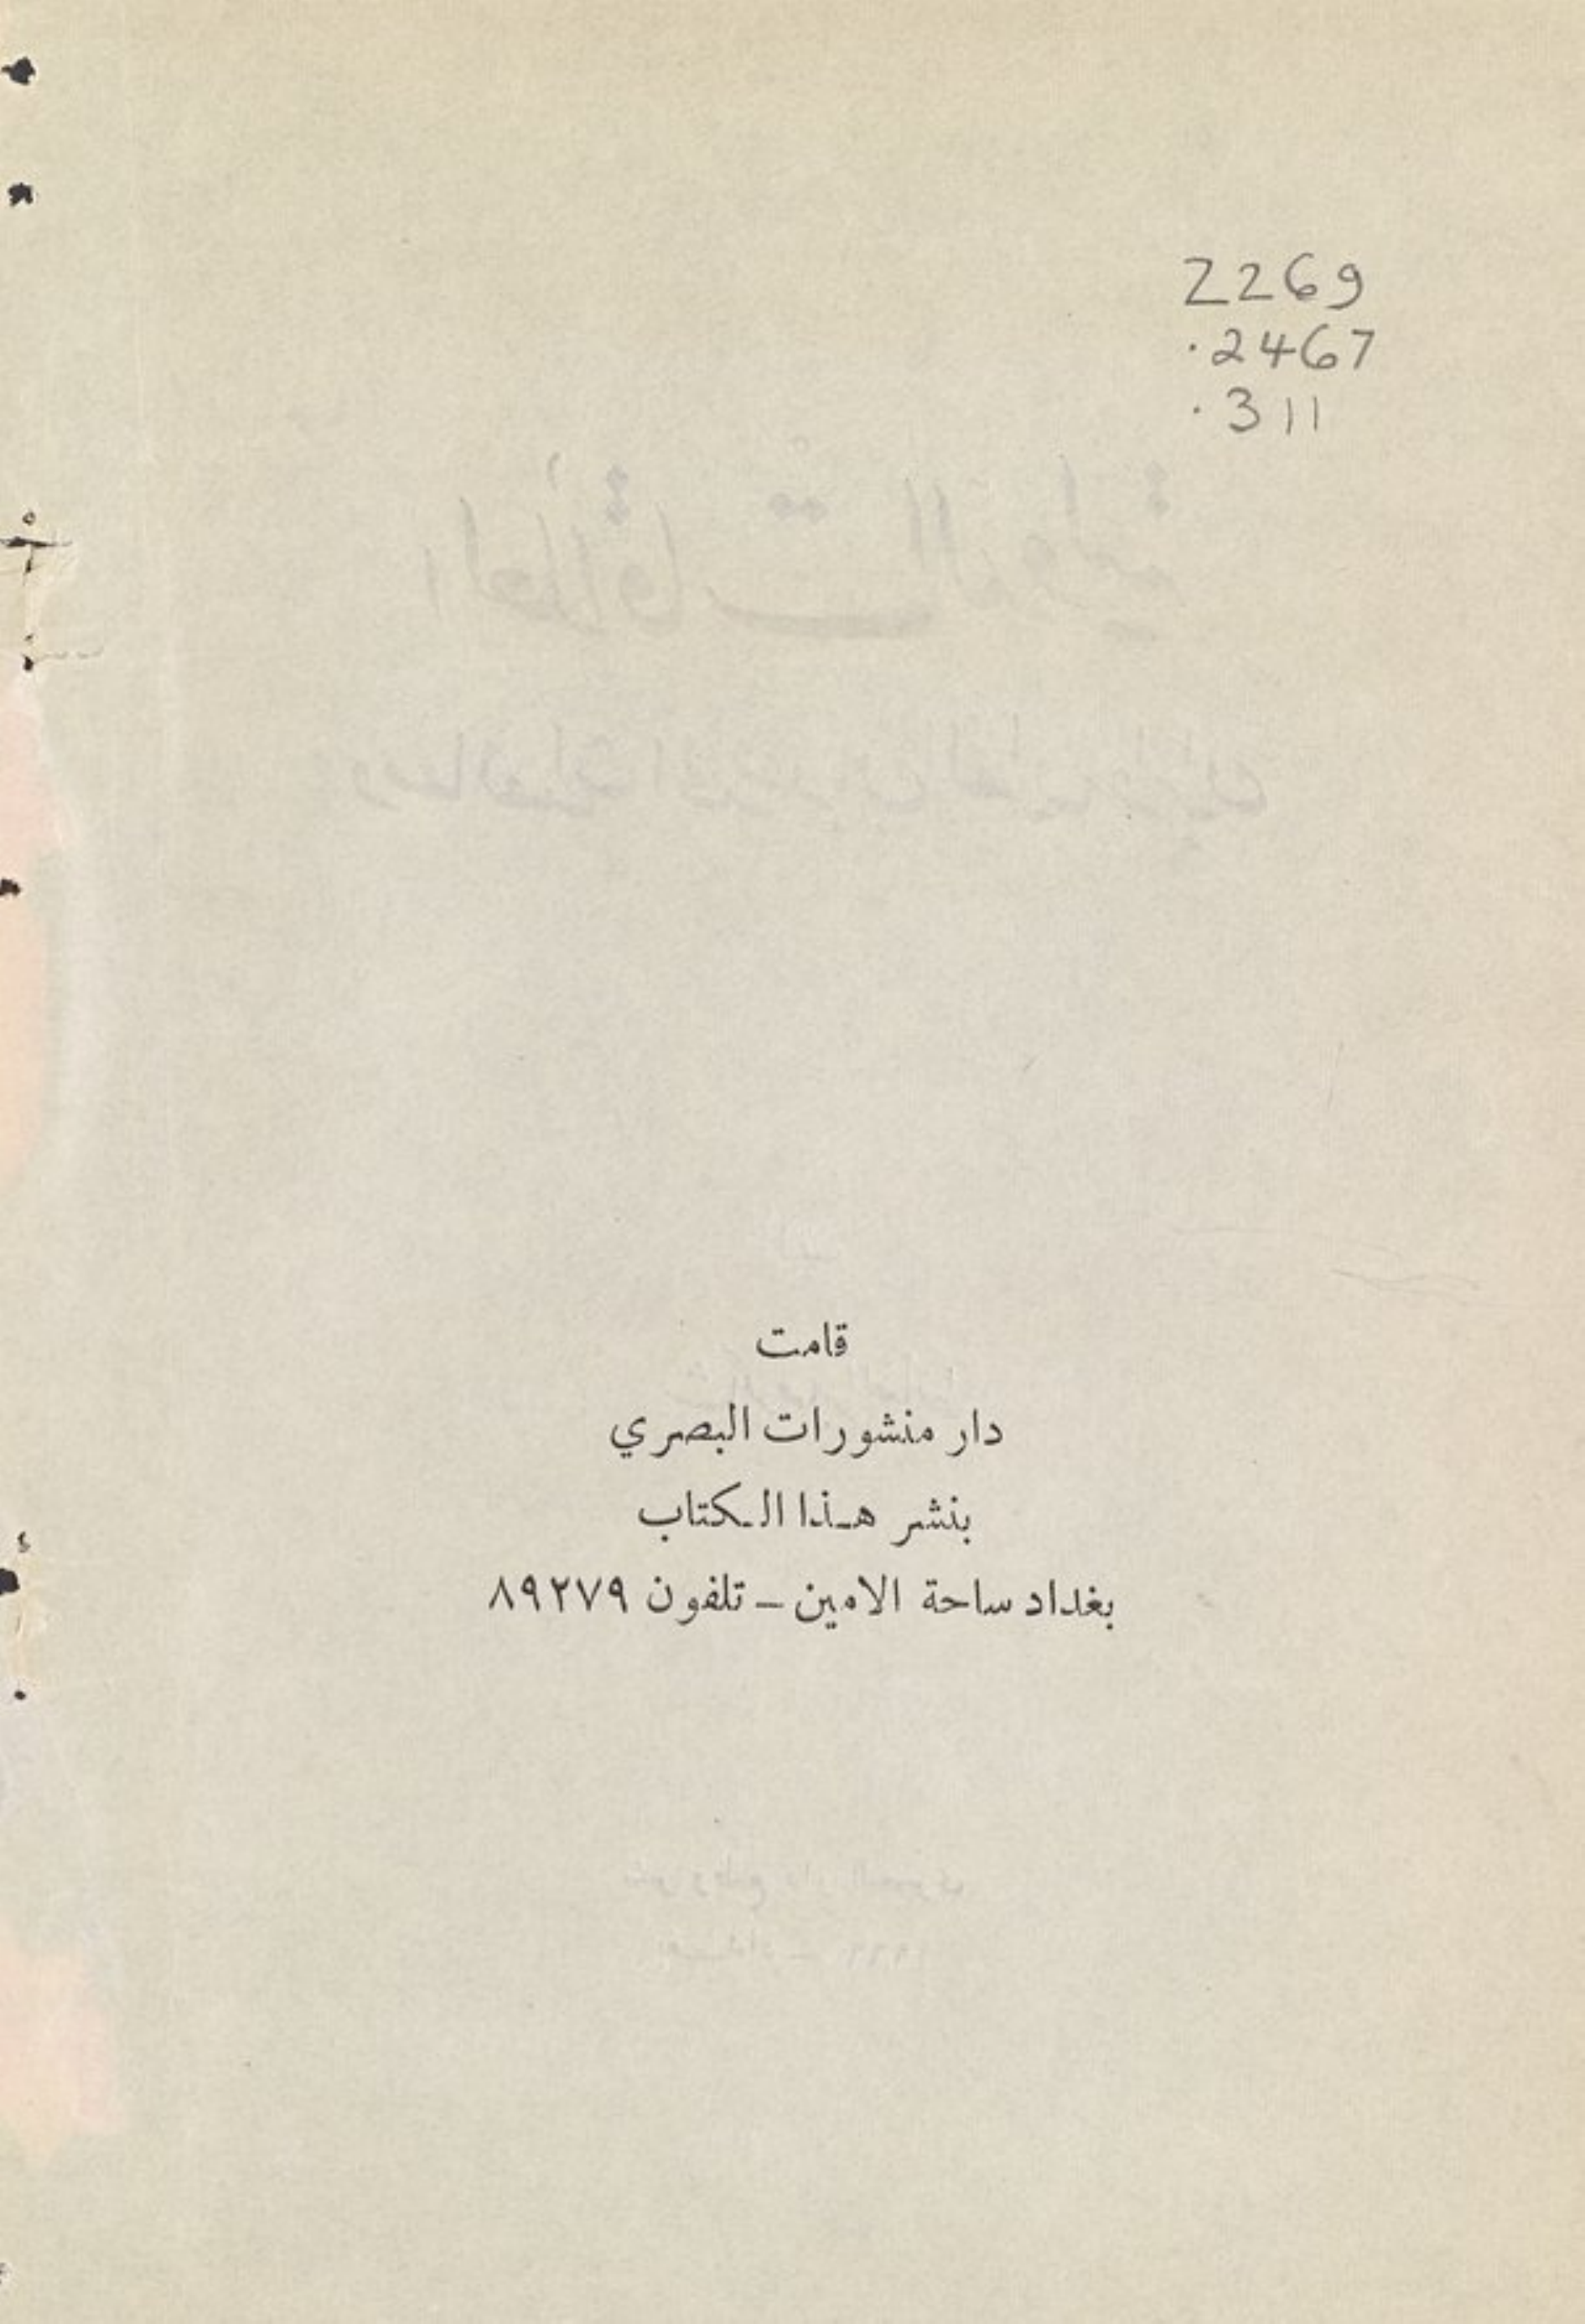 2269
.2467
.311
قامت
دار منشورات البصري
بنشر هذا الكتاب
بغداد ساحة الامين - تلفون ٨٩٢٧٩